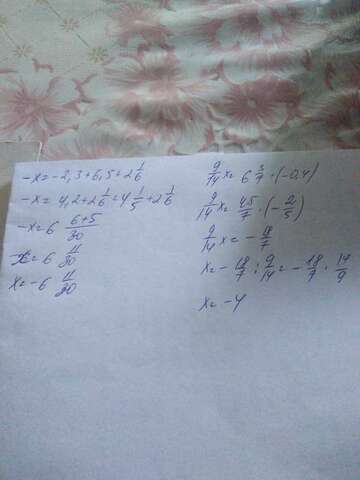 -x=-2,3+6,5+2 1/6
-x=4,2+2 1/6=4 1/5+2 1/6
-x=6 (6+5)/30
-x=6 11/30
x=-6 11/30
9/14 x=6 3/7·(-0,4)
9/14 x=45/7·(-2/5)
9/14 x=-18/7
x=-18/7:9/14=-18/7·14/9
x=-4